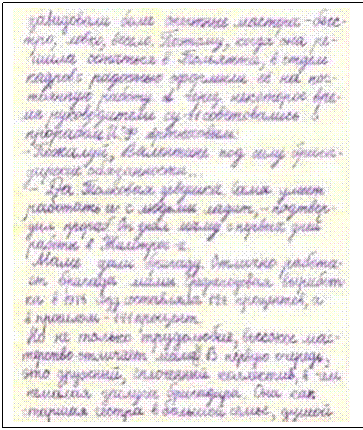 завидовали более опытные мастера - быст-
ро, ловко, весело. Поэтому, когда она ре-
шила остаться в Тольятти, в отделе
кадров с радостью оформили её на пос-
тоянную работу. А через некоторое вре-
мя руководители су советовались с
прорабом И.Ф.
- Пожалуй, Валентине под силу брига-
дирские обязанности...
- Да. Толковая девушка. Сама умеет
работать и с людьми ладит, - подтвер-
дил прораб. Он знал маму с первых дней
работы в
Маме дали бригаду. Отлично работа-
ет бригада мамы. выработ-
ка в 1974 году составляла процентов, а
в прошлом - процент.
Но не только трудолюбие, высокое мас-
терство отличает маму. В первую очередь,
это дружный, сплоченный коллектив, в чём
немалая заслуга бригадира. Она как
старшая сестра в большой семье, душой